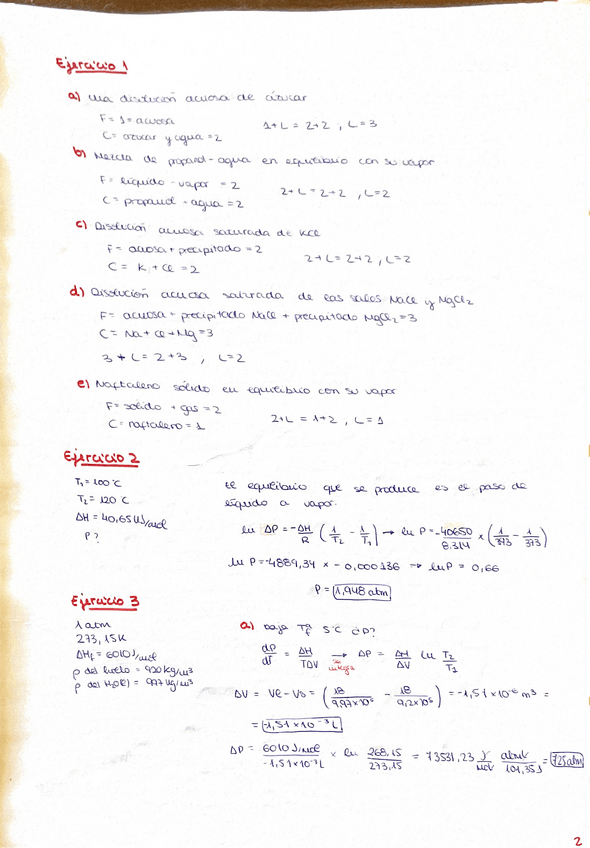 Ejercicio 1
a) Una disolución acuosa de azúcar
F = 1 = acuosa
C = azucar y agua = 2
1+L = 2+2 , L=3
b) Mezcla de propanol-agua en equilibrio con su vapor
F = líquido - vapor = 2
C = propanol - agua = 2
2+L = 2+2 , L=2
c) Disolución acuosa saturada de KCl
F = acuosa + precipitado = 2
C = K + Cl = 2
2+L = 2+2 , L=2
d) Disolución acuosa saturada de las sales NaCl y MgCl₂
F = acuosa + precipitado NaCl + precipitado MgCl₂ = 3
C = Na + Cl + Mg = 3
3+L = 2+3 , L=2
e) Naftaleno sólido en equilibrio con su vapor
F = sólido + gas = 2
C = naftaleno = 1
2+L = 1+2 , L=1
Ejercicio 2
T₁ = 100°C
T₂ = 120°C
ΔH = 40,65 kJ/mol
P?
El equilibrio que se produce es el paso de
líquido a vapor.
ln ΔP = -ΔH/R (1/T₂ - 1/T₁) → ln P = -40650/8.314 × (1/393 - 1/373)
ln P = -4889,34 × -0,000136 → ln P = 0,66
P = 1,948 atm
Ejercicio 3
1 atm
273,15K
ΔHf = 6010 J/mol
ρ del hielo = 920 kg/m³
ρ del H₂O(l) = 997 kg/m³
a) baja Tªf 5°C ¿P?
dP/dT = ΔH/TΔV → se integra ΔP = ΔH/ΔV ln T₂/T₁
ΔV = Vl - Vs = (18/9,97×10⁵ - 18/9,2×10⁵) = -1,51×10⁻⁶ m³ =
= -1,51×10⁻³ L
ΔP = 6010 J/mol / -1,51×10⁻³L × ln 268,15/273,15 = 73531,23 J/mol atm·L/101,35J = 725 atm
2